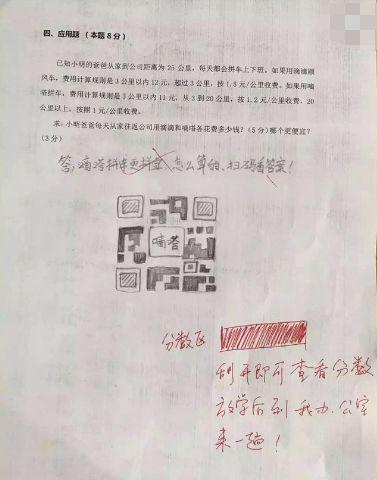 四、应用题（本题8分）
已知小明的爸爸从家到公司距离为25公里，每天都会拼车上下班。如果用滴滴顺
风车，费用计算规则是3公里以内12元，超过3公里，按1.8元/公里收费。如果用嘀
嗒拼车，费用计算规则是3公里以内11元，从3到20公里，按1.2元/公里收费，20
公里以上，按照1元/公里收费。
求：小明爸爸每天从家往返公司用滴滴和嘀嗒各花费多少钱？（5分）哪个更便宜？
（3分）
答：嘀嗒拼车更拼宜 怎么算的、扫码看答案！
嘀嗒
分数区
刮开即可查看分数
放学后到我办公室
来一趟！